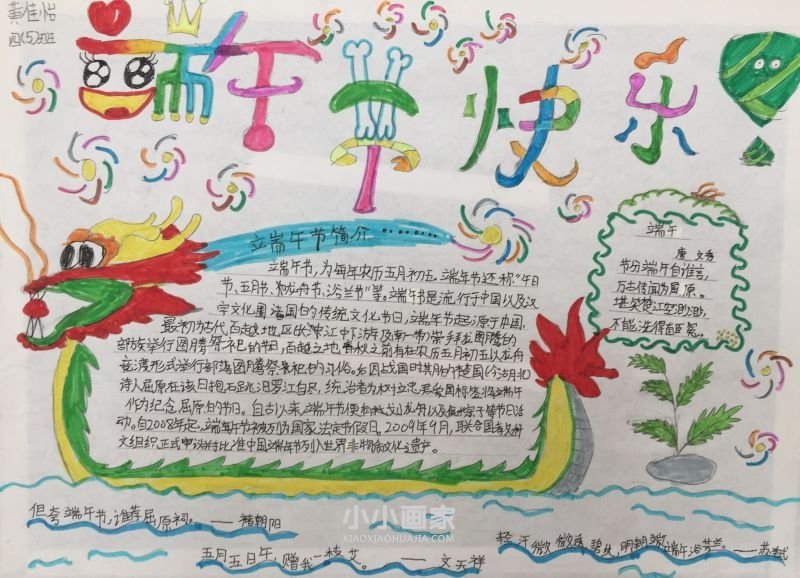 黄佳怡
四(5)班
端午节快乐
端午节简介........
端午节,为每年农历五月初五。端午节还称“午日
节、五月节、龙舟节、浴兰节”等。端午节是流行于中国以及汉
字文化圈诸国的传统文化节日,端午节起源于中国,
最初为古代百越地区
部族举行图腾祭祀的节日,百越之地春秋之前有在农历五月初五以龙舟
竞渡形式举行部落图腾祭祀的习俗。后因战国时期的楚国(今湖北)
诗人屈原在该日抱石跳汨罗江自尽,统治者为树立忠君爱国标签将端午
作为纪念屈原的节日。自古以来端午节便有划龙舟以及食粽子等节日活
动。自2008年起,端午节被列为国家法定节假日。2009年9月,联合国教科
文组织正式审议并批准中国端午节列入世界非物质文化遗产。
端午
唐 文秀
节分端午自谁言,
万古传闻为屈原。
堪笑楚江空渺渺,
不能洗得直臣冤。
但夸端午节,谁荐屈原祠。——褚朝阳
五月五日午,赠我一枝艾。——文天祥
轻汗微微透碧纨,明朝端午浴芳兰。——苏轼
小小画家
XIAOXIAOHUAJIA.COM